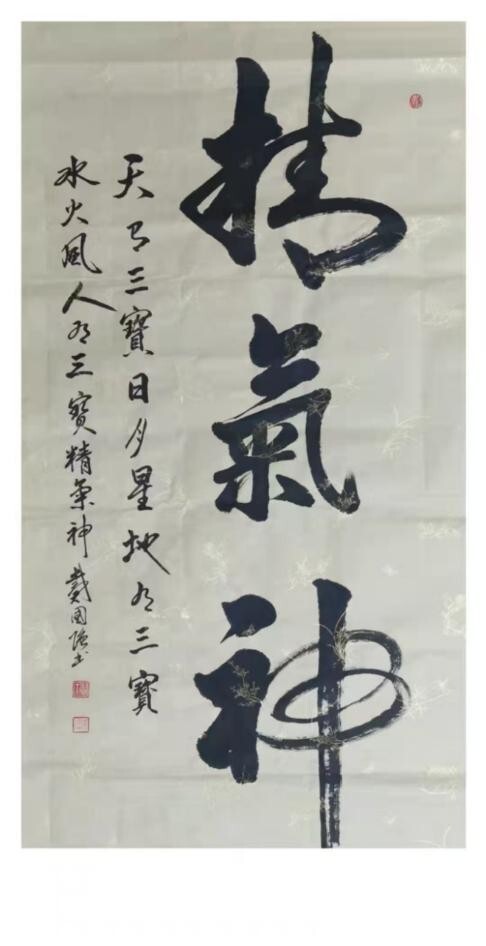 精氣神
天有三寶日月星地有三寶
水火風人有三寶精氣神 戴國強书